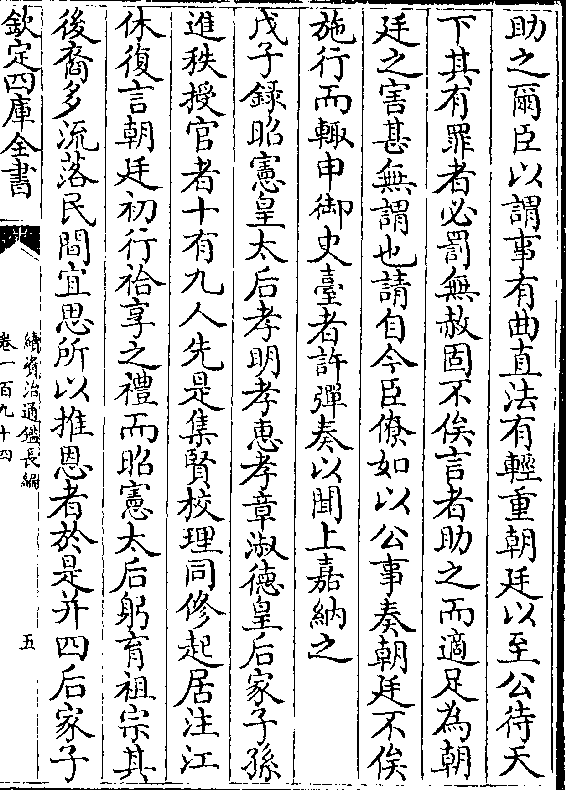 助之爾臣以謂事有曲直法有輕重朝廷以至公待天
下其有罪者必罰無赦固不俟言者助之而適足為朝
廷之害甚無謂也請自今臣僚如以公事奏朝廷不俟
施行而輙申御史臺者許彈奏以聞上嘉納之
戊子錄昭憲皇太后孝明孝惠孝章淑德皇后家子孫
進秩授官者十有九人先是集賢校理同修起居注江
休復言朝廷初行祫享之禮而昭憲太后躬育祖宗其
後裔多流落民間宜思所以推恩者於是并四后家子
欽定四庫全書
續資治通鑑長編
卷一百九十四
五